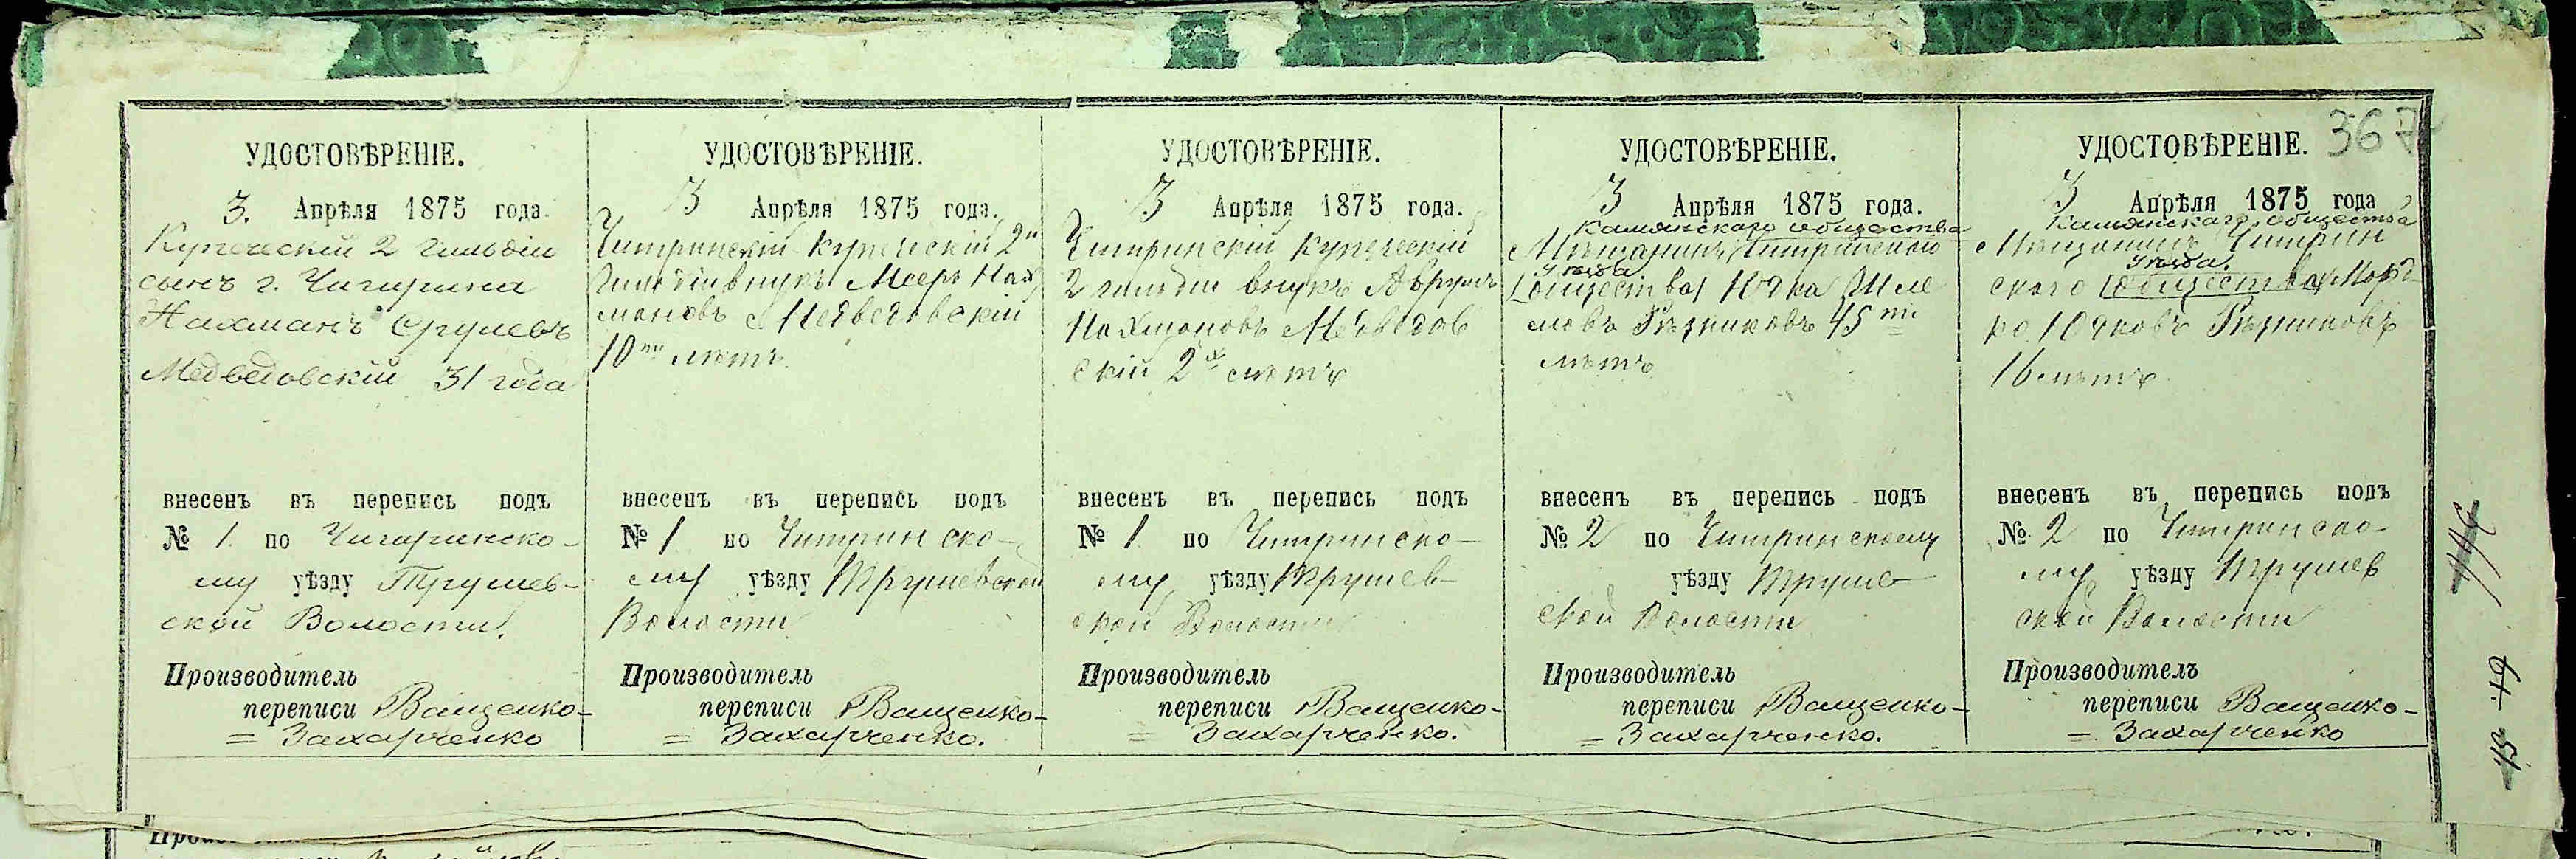 367
УДОСТОВѢРЕНІЕ.
3. Апрѣля 1875 года.
Купеческій 2 гильдіи
сынъ г. Чигирина
Нахманъ Срулевъ
Медведовскій 31 года
внесенъ въ перепись подъ
№ 1 по Чигиринско-
му уѣзду Трушев-
ской Волости.
Производитель
переписи Ващенко-
= Захарченко
УДОСТОВѢРЕНІЕ.
3 Апрѣля 1875 года.
Чигринскій купечискій 2й
гильдіи внукъ Меерь Нах
мановъ Медведовскій
10ти летъ
внесенъ въ перепись подъ
№ 1 по Чигрин ско-
му уѣзду Трушевской
Волости
Производитель
переписи Ващенко-
= Захарченко.
УДОСТОВѢРЕНІЕ.
3 Апрѣля 1875 года.
Чигринскій купеческій
2 гильдіи внукъ Аврумъ
Нахмановъ Медведов
скій 2х летъ
внесенъ въ перепись подъ
№ 1 по Чигринско-
му уѣзду Трушев-
ской Волости
Производитель
переписи Ващенко-
= Захарченко.
УДОСТОВѢРЕНІЕ.
3 Апрѣля 1875 года.
Камянскаго общества
Мѣщанинъ Чигринскаго
уезда
(общества) Юдка Шле
мовъ Резниковъ 45ти
летъ
внесенъ въ перепись подъ
№ 2 по Чигринскому
уѣзду Труше
ской Волости
Производитель
переписи Ващенко-
= Захарченко.
УДОСТОВѢРЕНІЕ.
3 Апрѣля 1875 года
Камянскаго общества
Мѣщанинъ Чигрин
уезда.
скаго (общества) Морд
ко Юдковъ Резниковъ
16 летъ
внесенъ въ перепись подъ
№ 2 по Чигринско-
му уѣзду Трушев
ской Волости
Производитель
переписи Ващенко-
= Захарченко